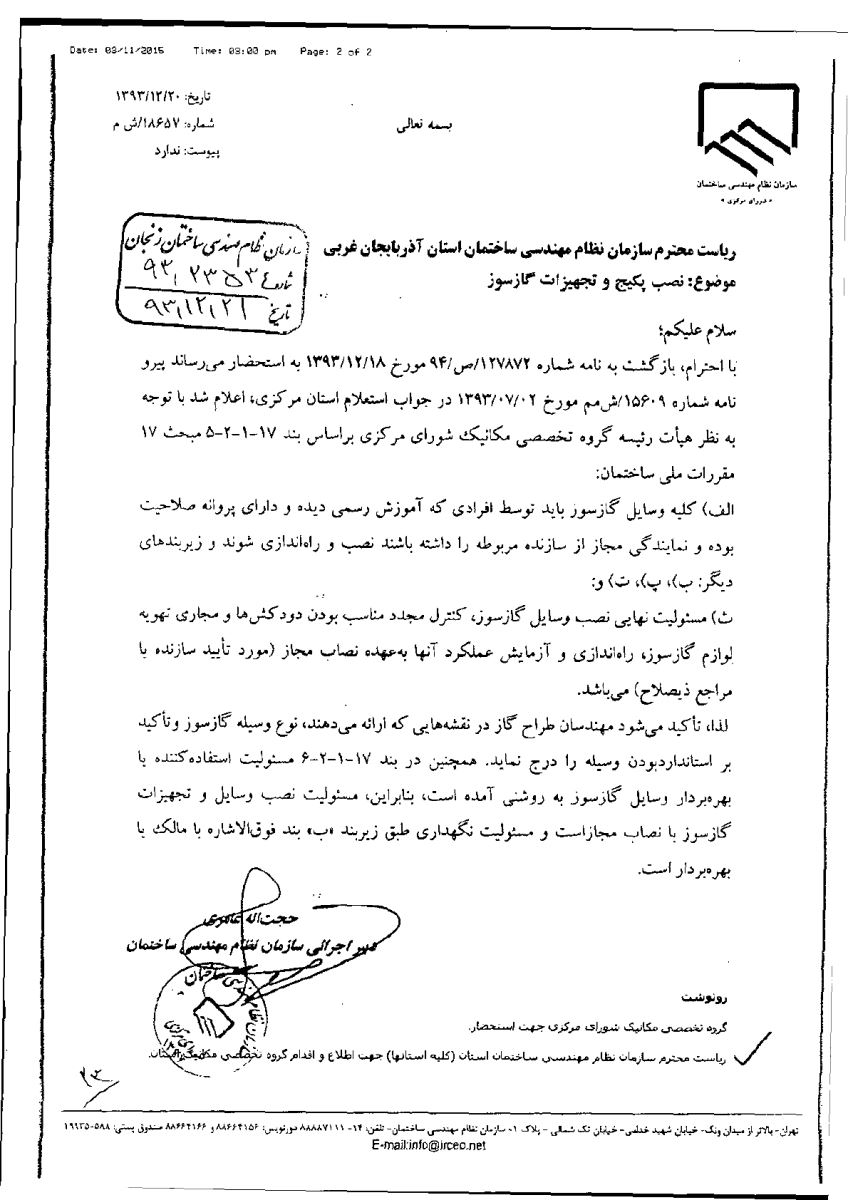 Date: 03/11/2015 Time: 03:00 pm Page: 2 of 2
تاریخ: ۱۳۹۳/۱۲/۲۰
شماره: ۱۸۶۵۷/ش م
پیوست: ندارد
بسمه تعالی
سازمان نظام مهندسی ساختمان
«شورای مرکزی»
سازمان نظام مهندسی ساختمان زنجان
شماره
تاریخ ۹۳/۱۲/۲۱
ریاست محترم سازمان نظام مهندسی ساختمان استان آذربایجان غربی
موضوع: نصب پکیج و تجهیزات گازسوز
سلام علیکم؛
با احترام، بازگشت به نامه شماره ۱۲۷۸۷۲/ص/۹۴ مورخ ۱۳۹۳/۱۲/۱۸ به استحضار می‌رساند پیرو
نامه شماره ۱۵۶۰۹/ش‌مم مورخ ۱۳۹۳/۰۷/۰۲ در جواب استعلام استان مرکزی، اعلام شد با توجه
به نظر هیأت رئیسه گروه تخصصی مکانیک شورای مرکزی براساس بند ۱۷-۱-۲-۵ مبحث ۱۷
مقررات ملی ساختمان:
الف) کلیه وسایل گازسوز باید توسط افرادی که آموزش رسمی دیده و دارای پروانه صلاحیت
بوده و نمایندگی مجاز از سازنده مربوطه را داشته باشند نصب و راه‌اندازی شوند و زیربندهای
دیگر: ب)، پ)، ت) و:
ث) مسئولیت نهایی نصب وسایل گازسوز، کنترل مجدد مناسب بودن دودکش‌ها و مجاری تهویه
لوازم گازسوز، راه‌اندازی و آزمایش عملکرد آنها به‌عهده نصاب مجاز (مورد تأیید سازنده یا
مراجع ذیصلاح) می‌باشد.
لذا، تأکید می‌شود مهندسان طراح گاز در نقشه‌هایی که ارائه می‌دهند، نوع وسیله گازسوز و تأکید
بر استانداردبودن وسیله را درج نماید. همچنین در بند ۱۷-۱-۲-۶ مسئولیت استفاده‌کننده یا
بهره‌بردار وسایل گازسوز به روشنی آمده است، بنابراین، مسئولیت نصب وسایل و تجهیزات
گازسوز با نصاب مجازاست و مسئولیت نگهداری طبق زیربند «ب» بند فوق‌الاشاره با مالک یا
بهره‌بردار است.
حجت‌اله عامری
مدیر اجرائی سازمان نظام مهندسی ساختمان
رونوشت
گروه تخصصی مکانیک شورای مرکزی جهت استحضار.
ریاست محترم سازمان نظام مهندسی ساختمان استان (کلیه استانها) جهت اطلاع و اقدام گروه تخصصی مکانیک استان.
تهران- بالاتر از میدان ونک- خیابان شهید خدامی- خیابان تک شمالی - پلاک ۱- سازمان نظام مهندسی ساختمان- تلفن: ۱۴- ۸۸۸۸۷۱۱۱ دورنویس: ۸۸۶۶۴۱۵۶ و ۸۸۶۶۴۱۶۶ صندوق پستی: ۵۸۸-۱۹۹۳۵
E-mail:info@irceo.net